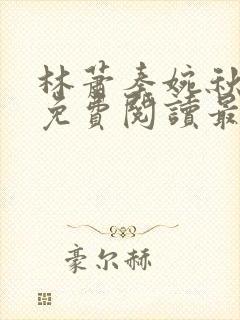 林萧秦婉秋
免費閱讀最
豪尔赫